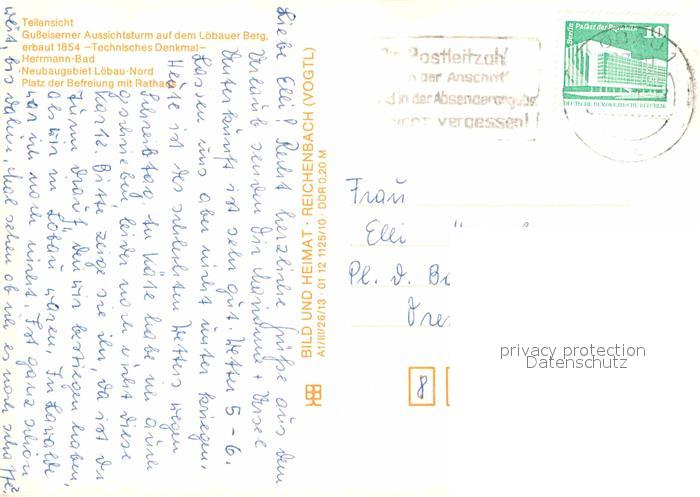 Teilansicht
Gußeiserner Aussichtsturm auf dem Löbauer Berg,
erbaut 1854 –Technisches Denkmal–
Herrmann-Bad
Neubaugebiet Löbau-Nord
Platz der Befreiung mit Rathaus
Liebe Elli! Recht herzliche Grüße aus dem
Urlaub senden Dir Manfred + Ursel
Unterkunft ist sehr gut. Wetter 5-6.
Lassen uns aber nicht unter kriegen.
Heute ist des schlechten Wetters wegen
Schreibtag. An Käte habe ich auch
geschrieben, leider noch nicht diese
Karte. Bitte zeige sie ihr, da ist der
Turm drauf, den wir bestiegen haben,
als wir in Löbau waren. In Lawalde
war ich noch nicht. Ist ganz schön
weit, bis dahin. Mal sehen ob ich es noch schaffe.
BILD UND HEIMAT · REICHENBACH (VOGTL)
A1/III/26/13 · 01 12 1125/10 · DDR 0,20 M
Postleitzahl
in der Anschrift
und in der Absenderangabe
nicht vergessen!
Berlin Palast der Republik
10
DEUTSCHE DEMOKRATISCHE REPUBLIK
Frau
Elli
Pl. d. Ba
Dre
8
privacy protection
Datenschutz